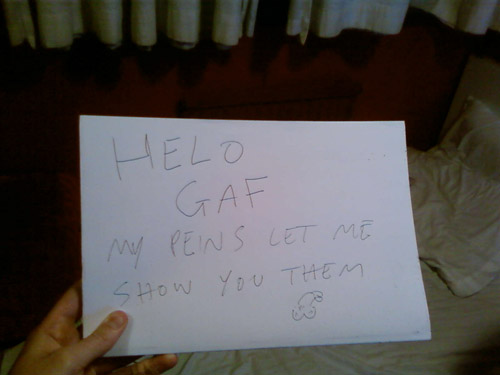 HELO
GAF
MY PEINS LET ME
SHOW YOU THEM